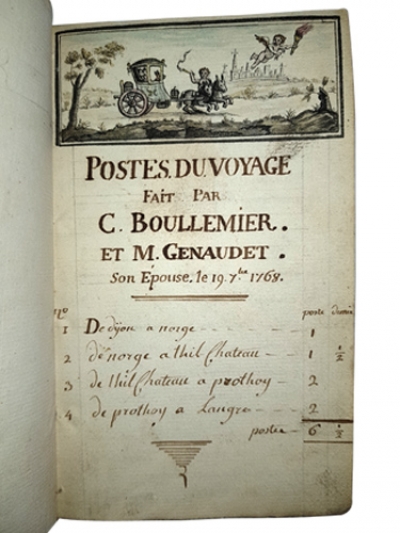 POSTES. DU. VOYAGE
FAIT PAR
C. BOULLEMIER.
ET M. GENAUDET.
Son Epouse. le 19. 7.bre 1768.
no poste demi
1 De dijon a norge 1
2 de norge a thil Chateau 1 ½
3 de thil Chateau a prothoy 2
4 de prothoy a Langre 2
postes 6 ½